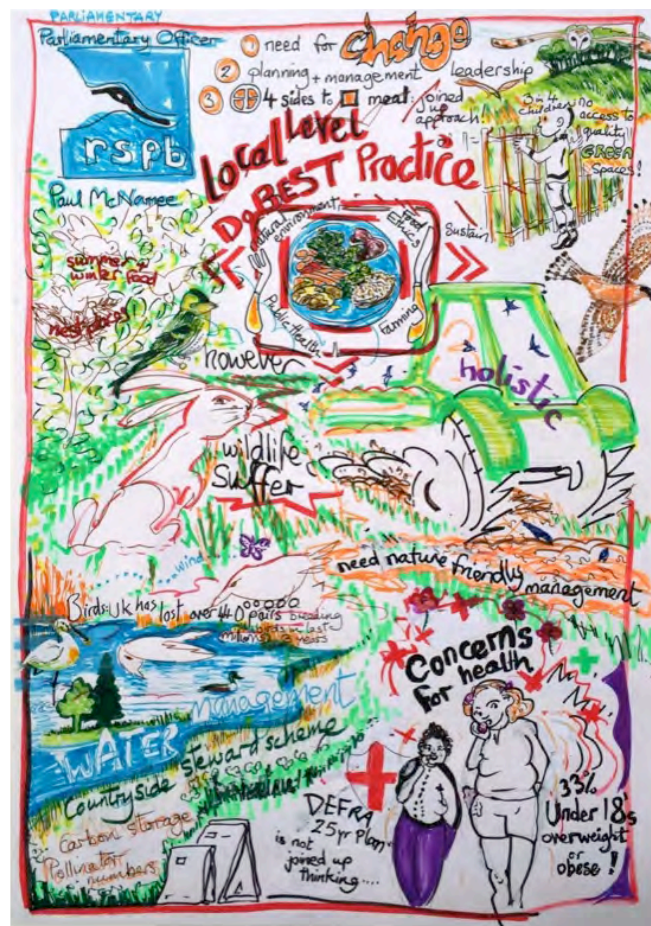 PARLIAMENTARY
Parliamentary Officer
rspb
Paul McNamee
1 need for Change
2 planning + management leadership
3 4 sides to meat: joined
up
approach!
3 in 4
children no
access to
quality
GREEN
spaces!
Local Level
Do BEST Practice
natural
environment
Food
Ethics
Sustain
Public Health
farming
summer +
winter food
nest places
however
holistic
wildlife
Suffer
wind
need nature friendly
management
Birds: UK has lost over 40 pairs breeding
birds in last
Concerns
for health
management
WATER
Countryside + steward scheme
Carbon storage
Pollinator
numbers
DEFRA
25 yr Plan
is not
joined up
thinking....
33%
Under 18's
overweight
or
obese!